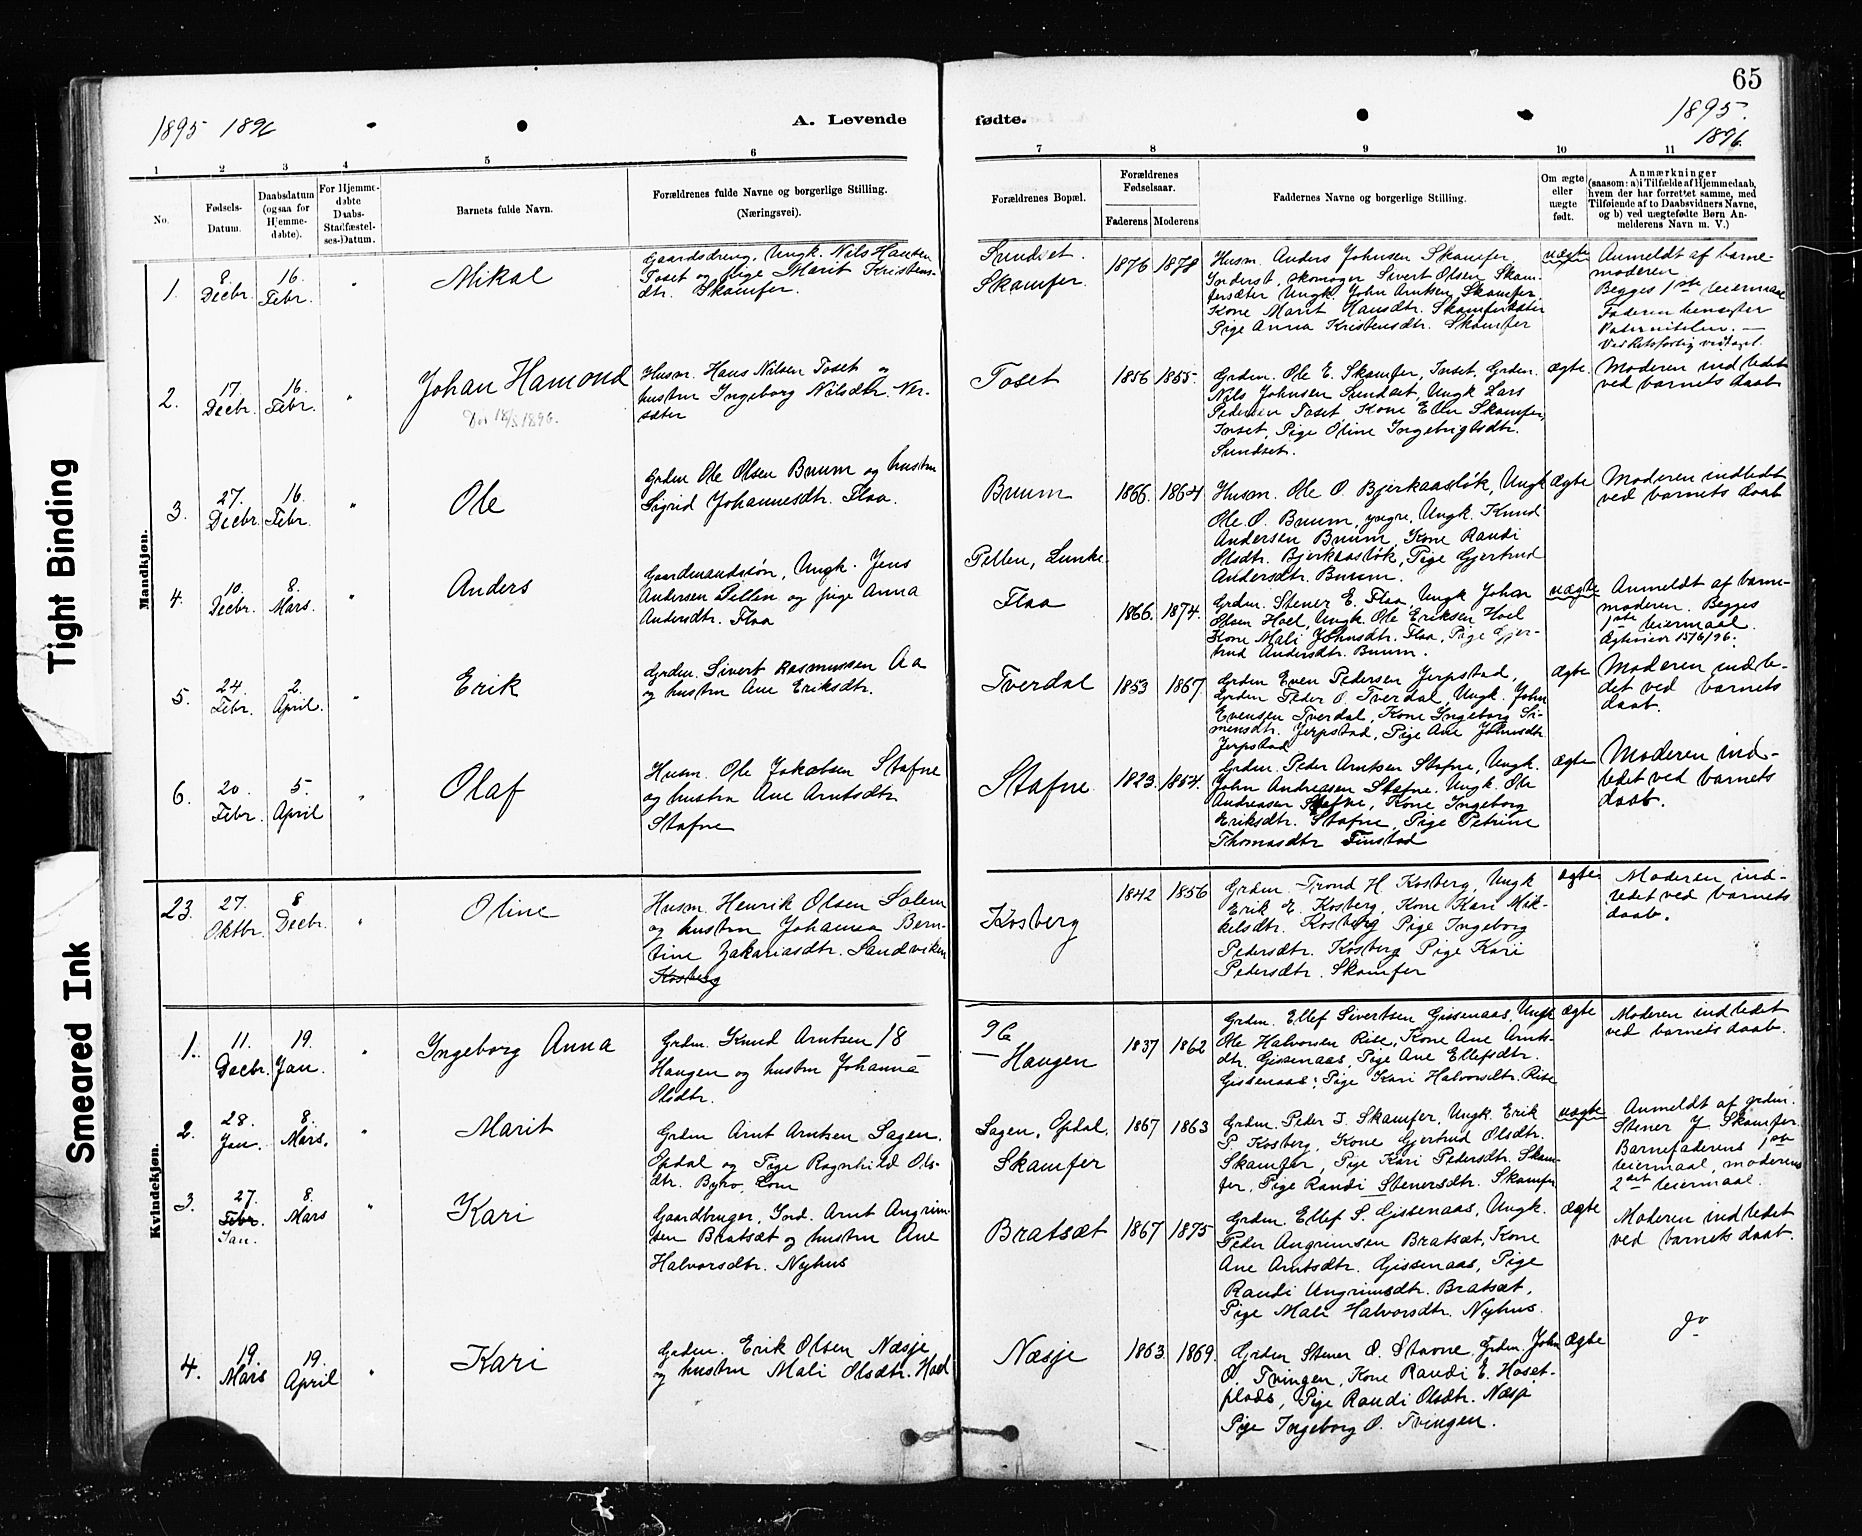 65
1895 1896
A. Levende
fødte.
1895.
1896.
1 2 3 4 5 6 7 8 9 10 11
No.
Fødsels-Datum.
Daabsdatum (ogsaa for Hjemmedøbte).
For Hjemmedøbte Daabs-Stadfæstelses-Datum.
Barnets fulde Navn.
Forældrenes fulde Navne og borgerlige Stilling.
(Næringsvei).
Forældrenes Bopæl.
Forældrenes Fødselsaar.
Faderens Moderens
Faddernes Navne og borgerlige Stilling.
Om ægte eller uægte født.
Anmærkninger
(saasom: a) i Tilfælde af Hjemmedaab, hvem der har forrettet samme, med Tilføiende af to Daabsvidners Navne, og b) ved uægtefødte Børn Anmelderens Navn m. V.)
Tight Binding
Smeared Ink
Mandkjøn.
1. 8. Decbr. 16. Febr. " Mikal
Gaardsdreng, Ungk. Nils Hansen
Toset og pige Marit Kristens-
dtr. Skamfer.
Sundset.
Skamfer.
1876 1878
Husm. Anders Johnsen Skamfer,
Inderst, skomager Sivert Olsen Skam-
fersæter Ungk. John Arntsen Skamfer,
Kone Marit Hansdtr. Skamfersæter
Pige Anna Kristensdtr. Skamfer
uægte
Anmeldt af barne-
moderen
Begges 1ste leiermaal
Faderen benægter
Paterniteten. —
2. 17. Decbr. 16. Febr. " Johan Hamond
Død 1896.
Husm. Hans Nilsen Toset og
hustru Ingeborg Nilsdtr. Ner-
sæter
Toset
1856 1855.
Grdm. Ole E. Skamfer, Inset, Grdm.
Nils Johnsen Sundset, Ungk Lars
Pedersen Toset, Kone Ellen Skamfer,
Inset, Pige Oline Ingebrigtsdtr.
Sundset.
ægte.
Moderen indledet
ved barnets daab
3. 27. Decbr. 16. Febr. " Ole
Grdm Ole Olsen Buum og hustru
Sigrid Johannesdtr. Flaa.
Buum
1866. 1864
Husm. Ole O. Bjerkaasløk, Ungk
Ole O. Buum, yngre, Ungk. Knud
Andersen Buum, Kone Randi
Olsdtr. Bjerkaasløk, Pige Gjertrud
Andersdtr. Buum.
ægte
Moderen indledet
ved barnets daab
4. 10. Decbr. 8. Mars. " Anders
Gaardmandssøn, Ungk. Jens
Andersen Pellen og pige Anna
Andersdtr. Flaa
Pellen, Lunke.
Flaa
1866. 1874.
Grdm. Stener E. Flaa, Ungk John
Olsen Hoel, Ungk. Ole Eriksen Hoel
Kone Mali Johnsdtr. Flaa, Pige Gjer-
trud Andersdtr. Buum.
uægte
Anmeldt af barne-
moderen. Begges
1ste leiermaal.
5. 24. Febr. 2. April. " Erik
Grdm. Sivert Rasmussen Aa
og hustru Ane Eriksdtr.
Tverdal
1853 1867.
Grdm Even Pedersen Jerpstad,
Grdm Peder O. Tverdal, Ungk. John
Evensen Tverdal, Kone Ingeborg Si-
mensdtr. Jerpstad, Pige Ane Johnsdtr
Jerpstad
ægte
Moderen indle-
det ved barnets
daab.
6. 20. Febr. 5. April " Olaf
Husm. Ole Jakobsen Stafne
og hustru Ane Arntsdtr
Stafne
Stafne
1823. 1854.
Grdm. Peder Arntsen Stafne, Ungk.
John Andreasen Stafne. Ungk Ole
Andreasen Stafne, Kone Ingeborg
Eriksdtr. Stafne, Pige Petrine
Thomasdtr Finstad
ægte
Moderen ind-
ledet ved barnets
daab.
23. 27. Oktbr. 8 Decbr. " Oline
Husm. Henrik Olsen Solem
og hustru Johanna Bern-
tine Zakariasdtr. Sandviken
Kosberg
Kosberg
1842 1856
Grdm. Trond H. Kosberg, Ungk
Erik E. Kosberg, Kone Kari Mik-
kelsdtr. Kosberg Pige Ingeborg
Pedersdtr. Kosberg Pige Kari
Pedersdtr. Skamfer
ægte
Moderen ind-
ledet ved barnets
daab.
Kvindekjøn.
1. 11. Decbr. 19. Jan. " Ingeborg Anna
Grdm. Knud Arntsen 18
Haugen og hustru Johanna
Olsdtr.
96
— Haugen
1837 1862
Grdm. Ellef Sivertsen Gissenaas, Ungk
Ole Halvorsen Rise, Kone Ane Arnts-
dtr. Gissenaas, Pige Ane Ellefsdtr.
Gissenaas; Pige Kari Halvorsdtr. Rise
ægte
Moderen indledet
ved barnets daab.
2. 28. Jan. 8. Mars. " Marit
Grdm Arnt Arntsen Sagen,
Opdal og Pige Ragnhild Ols-
dtr. Byro, Lom
Sagen, Opdal.
Skamfer
1867 1863
Grdm. Peder I. Skamfer, Ungk. Erik
P. Kosberg, Kone Gjertrud Olsdtr.
Skamfer, Pige Kari Pedersdtr. Skam-
fer, Pige Randi Stenersdtr. Skamfer
uægte
Anmeldt af grdm.
Stener J Skamfer.
Barnefaderens 1ste
leiermaal, moderens
2det leiermaal.
3. 27. Febr. Jan. 8. Mars " Kari
Gaardbruger, Ind. Arnt Angrim-
sen Bratsæt og hustru Ane
Halvorsdtr. Nyhus
Bratsæt
1867 1875
Grdm. Ellef S. Gissenaas, Ungk.
Peder Angrimsen Bratsæt, Kone
Ane Arntsdtr. Gissenaas, Pige
Randi Angrimsdtr. Bratsæt,
Pige Mali Halvorsdtr. Nyhus.
ægte
Moderen indledet
ved barnets daab.
4. 19. Mars 19. April " Kari
Grdm. Erik Olsen Næsje
og hustru Mali Olsdtr. Hoel
Næsje
1863. 1869.
Grdm Stener O. Stavne, Grdm. John
O. Tvingen, Kone Randi E. Hoset-
plads, Pige Randi Olsdtr. Næsje
Pige Ingeborg O. Tvingen.
ægte